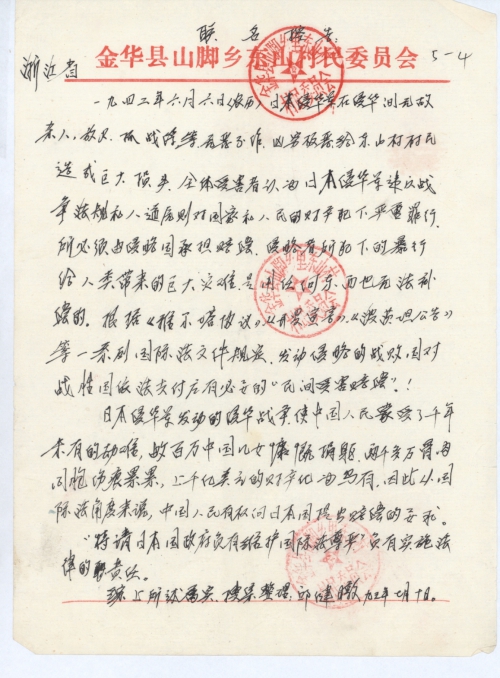 联名控告
金华县山脚乡东山村民委员会
5-4
浙江省
一九四二年六月六日(农历),日本侵华军在侵华间无故
杀人,放火,抓战 等无恶不作,凶害极恶给东山村村民
造成巨大损失,全体受害者认为日本侵华军违反战
争法规和人道原则对国家和人民的财产犯下严重罪行,
所必须由侵略国承担赔偿,侵略者所犯下的暴行
给人类带来的巨大灾难是用任何东西也无法补
偿的。根据《 协议》《开罗宣言》《波茨坦公告》
等一系列国际法文件规定,发动侵略的战败国对
战胜国依法支付应有必要的“民间受害赔偿”!
日本侵华军发动的侵华战争,使中国人民蒙受了千年
未有的劫难,数百万中国儿女慷慨捐躯,两千多万骨肉
同胞伤痕累累,上千亿美元的财产化为乌有,因此从国
际法角度来说,中国人民有权向日本国提出赔偿的要求。
“特请日本国政府负有维护国际法尊严”负有实施法
律的职责。
综上所述属实,搜集整理: 邱健 九五年七月十日。